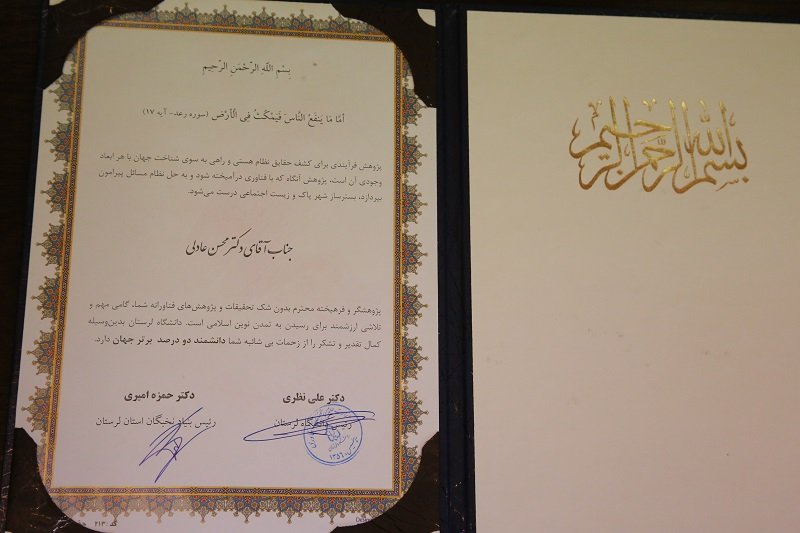 بِسْمِ اللَّهِ الرَّحْمَنِ الرَّحِيمِ
أمّا مَا يَنفَعُ النَّاسَ فَيَمْكُثُ فِي الْأَرْضِ (سوره رعد- آیه ۱۷)
پژوهش فرآیندی برای کشف حقایق نظام هستی و راهی به سوی شناخت جهان با هر ابعاد
وجودی آن است، پژوهش آنگاه که با فناوری درآمیخته شود و به حل نظام مسائل پیرامون
بپردازد، بسترساز شهر پاک و زیست اجتماعی درست می‌شود.
جناب آقای دکتر محسن عادلی
پژوهشگر و فرهیخته محترم بدون شک تحقیقات و پژوهش‌های فناورانه شما، گامی مهم و
تلاشی ارزشمند برای رسیدن به تمدن نوین اسلامی است. دانشگاه لرستان بدین‌وسیله
کمال تقدیر و تشکر را از زحمات بی شائبه شما دانشمند دو درصد برتر جهان دارد.
دکتر علی نظری
رئیس دانشگاه لرستان
دکتر حمزه امیری
رئیس بنیاد نخبگان استان لرستان
کد :۲۱۳
بسم الله الرحمن الرحیم